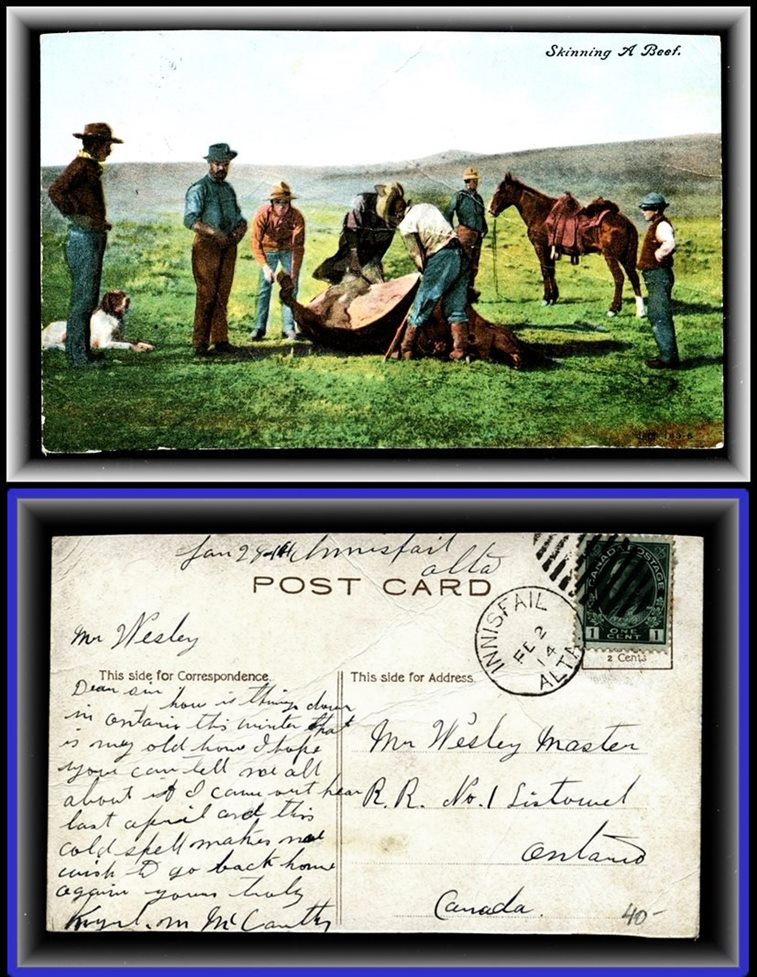 Skinning A Beef.
Jan 29th Innisfail
Alta
POST CARD
INNISFAIL
FE 2
14
ALTA
CANADA POSTAGE
1 ONE CENT 1
2 Cents
Mr Wesley
This side for Correspondence.
Dear sir how is things down
in Ontario this winter that
is my old home I hope
you can tell me all
about it I came out hear
last april and this
cold spell makes me
wish to go back home
again yours truly
McCarthy
This side for Address.
Mr Wesley Master
R.R. No. 1 Listowel
Ontario
Canada.
40-